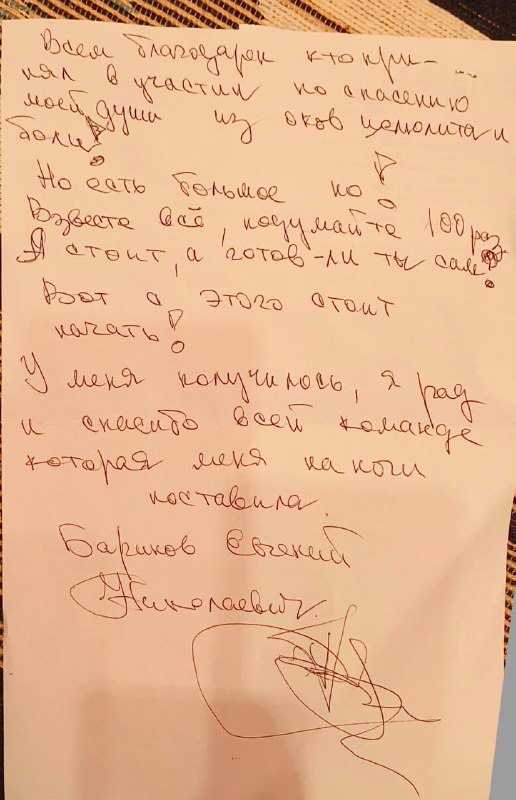 Всем благодарен кто при- ...
нял в участии по спасению
моей души из оков
боли!
Но есть большое но!
Взвесте всё, подумайте 100 раз.
Я стоит, а готов-ли ты сам?
Вот с этого стоит
начать!
У меня получилось, я рад
и спасибо всей команде
которая меня на ноги
поставила.
Бариков Евгений
Николаевич.